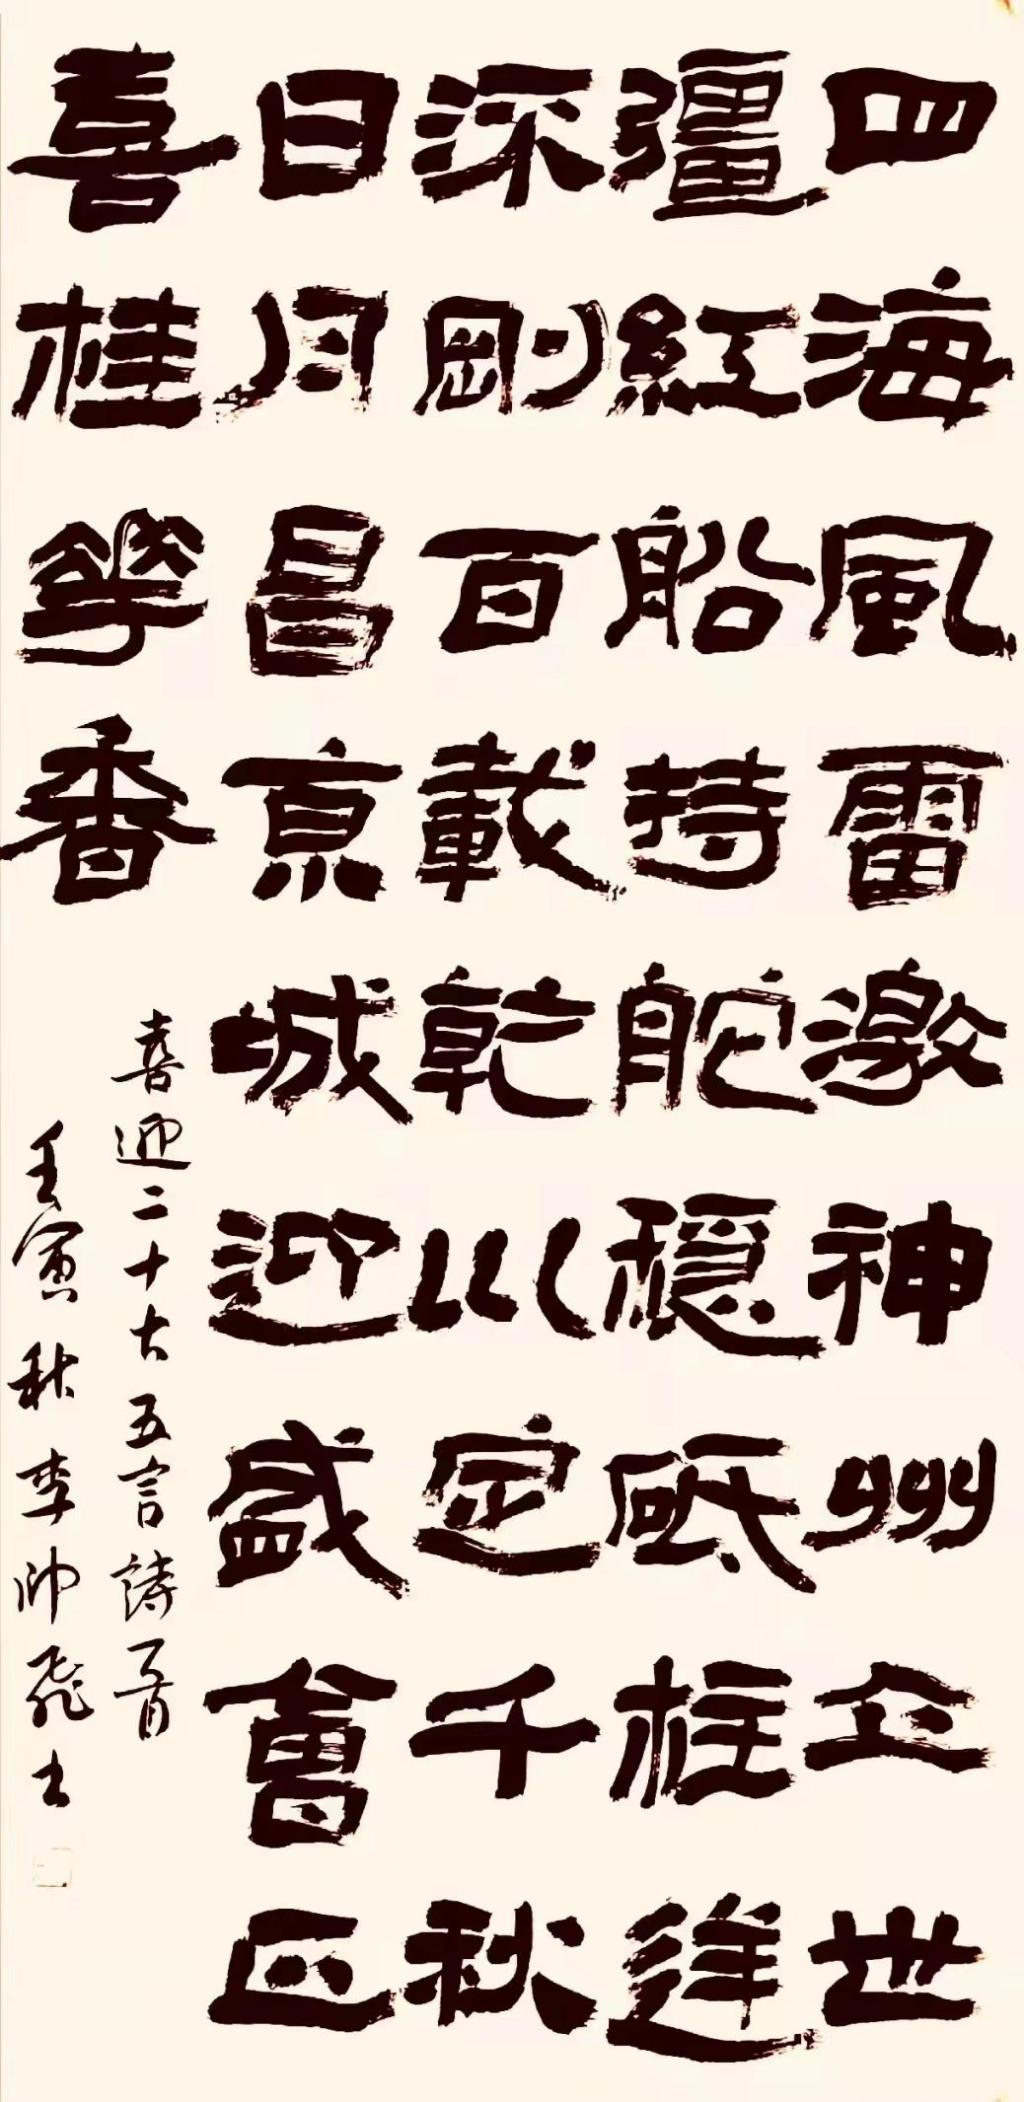 四海風雷激神州立世
疆紅船持舵穩砥柱逢
深剛百載乾巛定千秋
日月昌京城迎盛會正
喜桂華香
喜迎二十大五言詩一首
壬寅秋李帥飛士